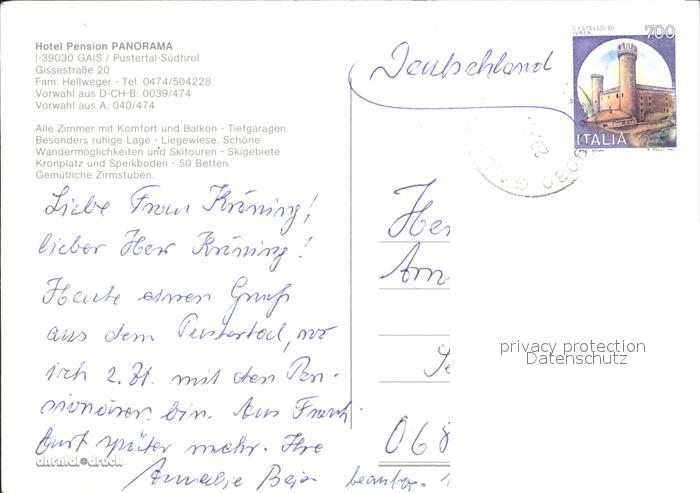 Hotel Pension PANORAMA
I-39030 GAIS / Pustertal-Südtirol
Gissestraße 20
Fam. Hellweger - Tel. 0474/504228
Vorwahl aus D-CH-B: 0039/474
Vorwahl aus A: 040/474
Alle Zimmer mit Komfort und Balkon - Tiefgaragen.
Besonders ruhige Lage - Liegewiese. Schöne
Wandermöglichkeiten und Skitouren - Skigebiete
Kronplatz und Speikboden - 50 Betten.
Gemütliche Zirmstuben.
Liebe Frau Kröning!
lieber Herr Kröning!
Heute einen Gruß
aus dem Pustertal, wo
ich z. Zt. mit den Pen-
sionären bin. Aus Frank-
furt später mehr. Ihre
Annalie
ahrntal druck
Deutschland
CASTELLO DI
IVREA
700
ITALIA
39030 GAIS
Her
Am
068
privacy protection
Datenschutz